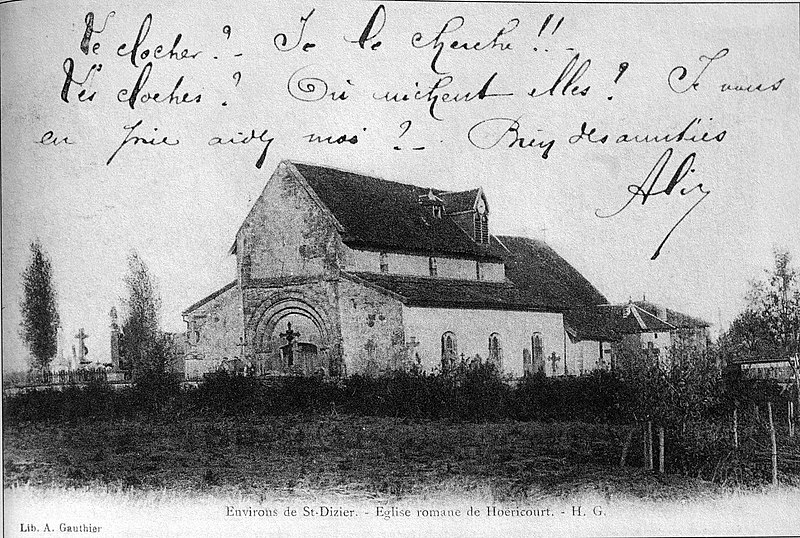 Le clocher ? - Je le cherche !! -
Les cloches ? Où nichent elles ? Je vous
en prie aidez moi ? - . Bien des amitiés
Alix
Environs de St-Dizier. - Eglise romane de Hoëricourt. - H. G.
Lib. A. Gauthier